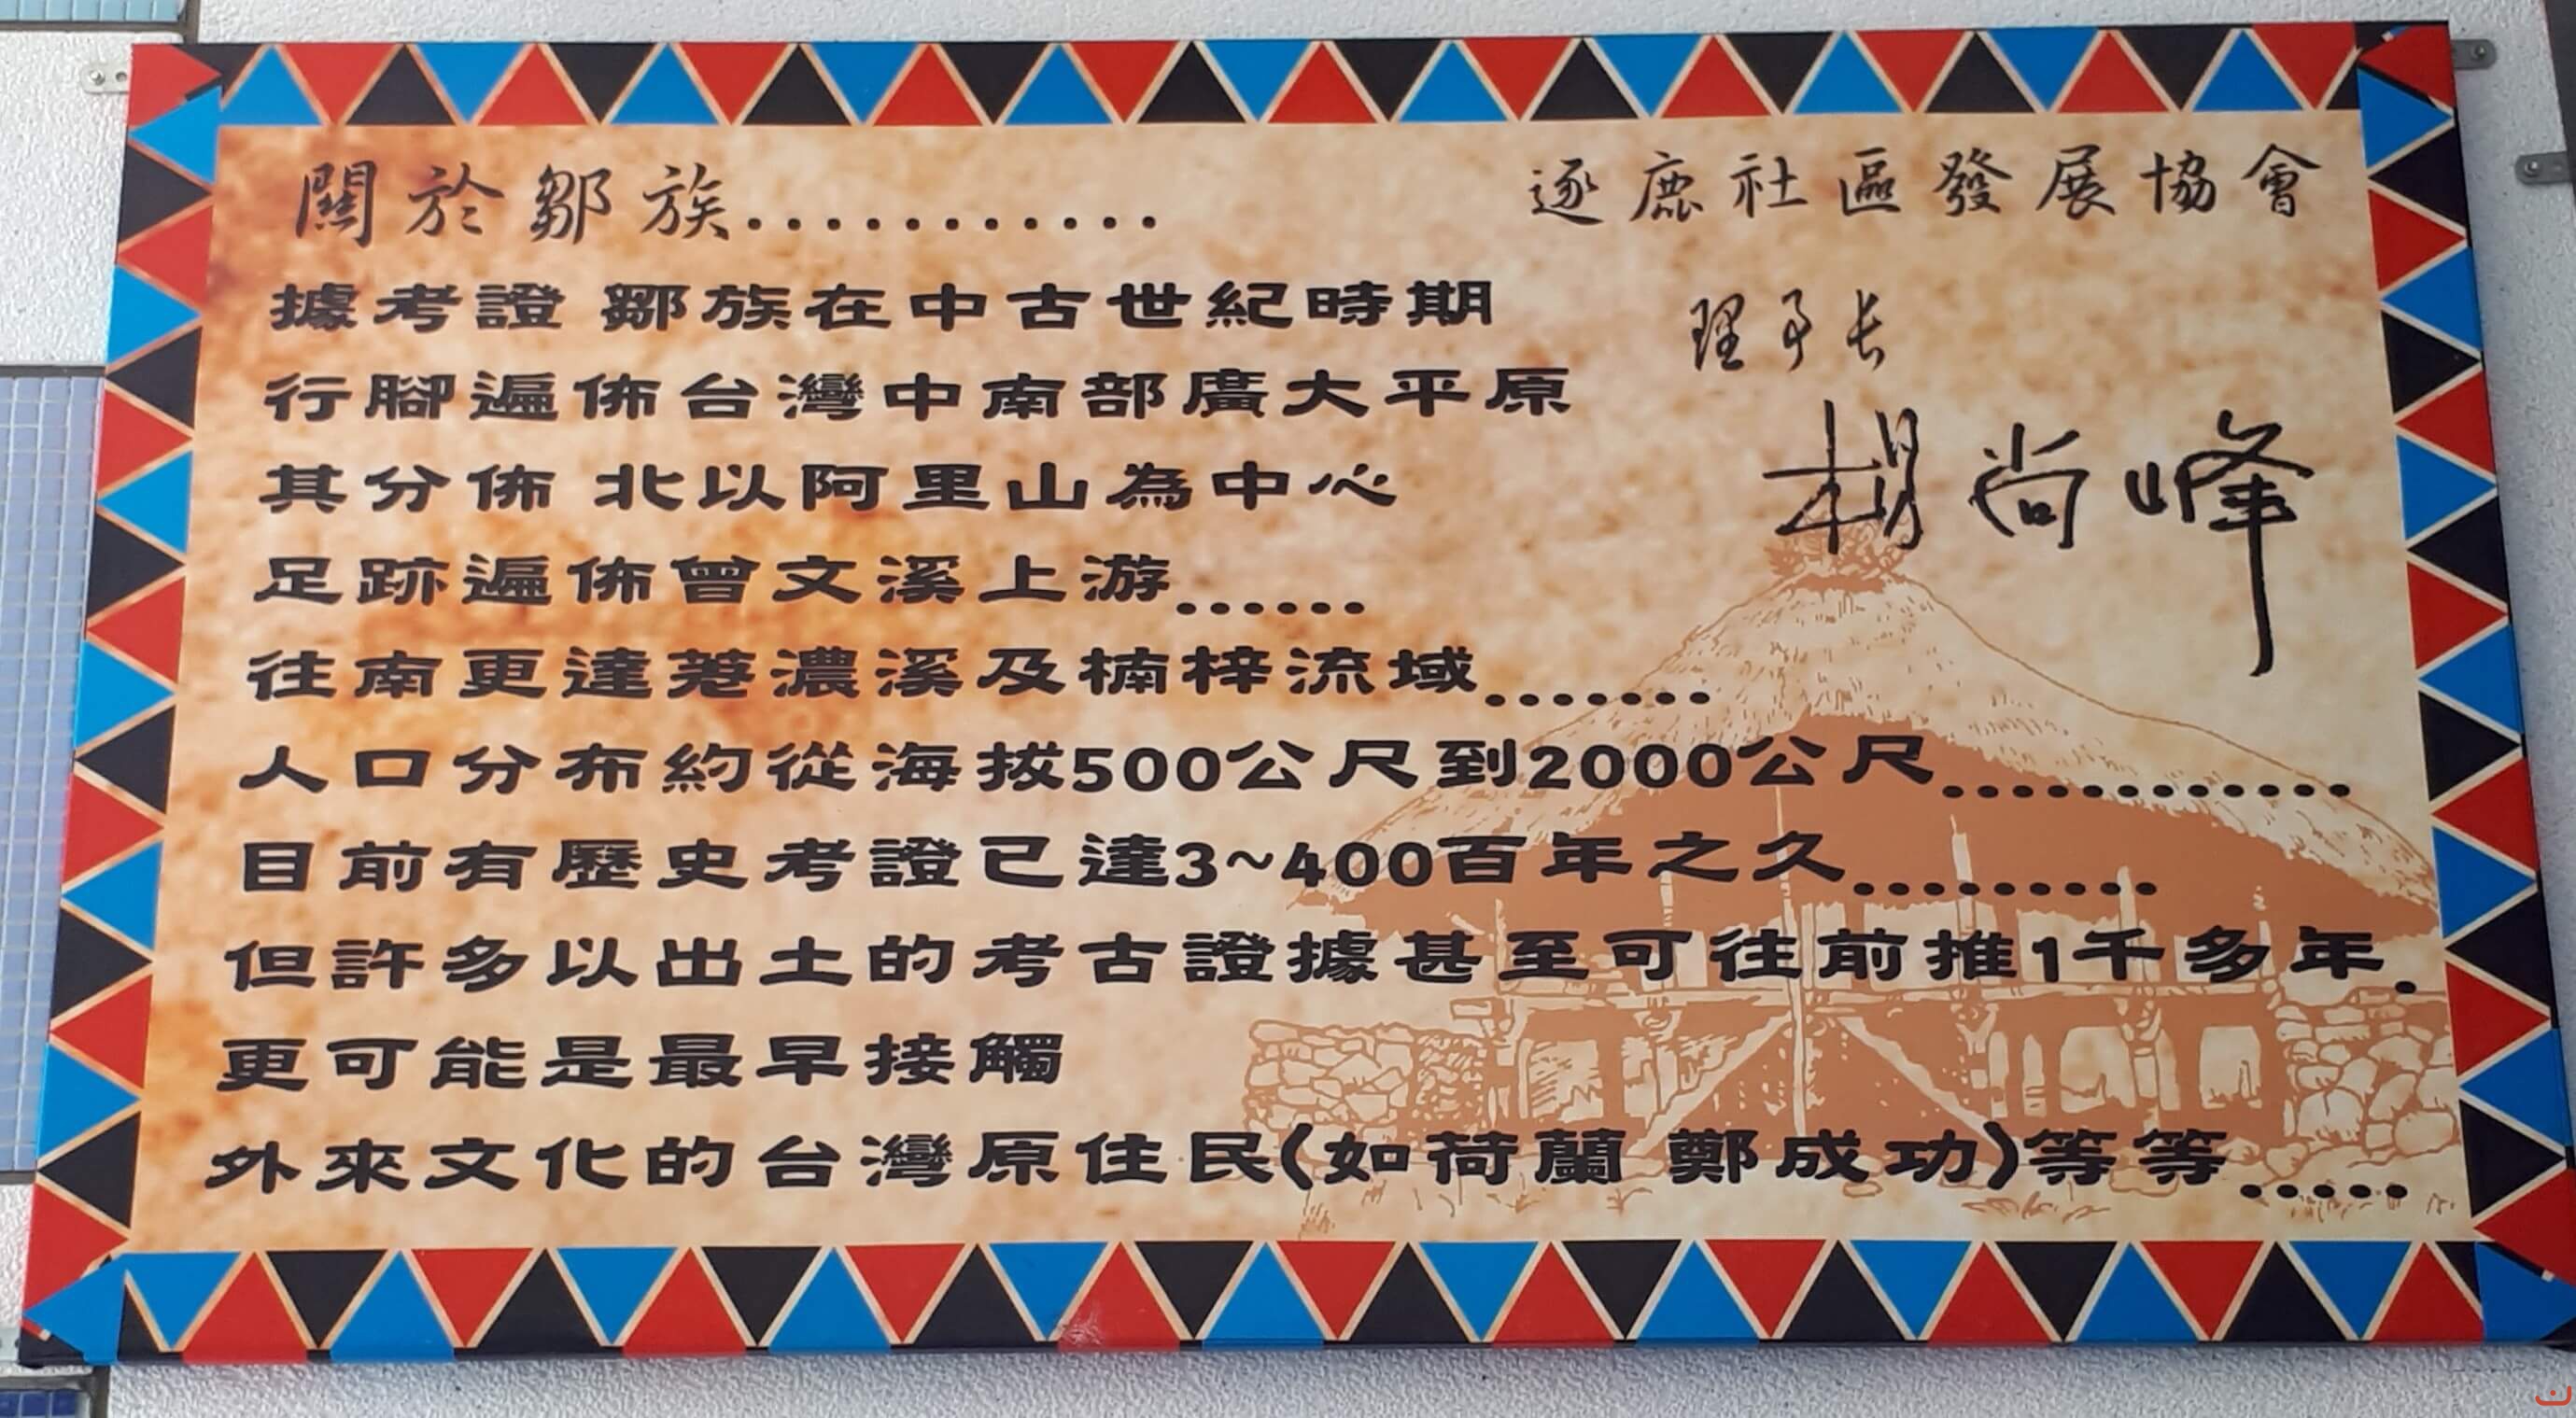 關於鄒族............
逐鹿社區發展協會
理事长
楊尚峰
據考證 鄒族在中古世紀時期
行腳遍佈台灣中南部廣大平原
其分佈 北以阿里山為中心
足跡遍佈曾文溪上游......
往南更達荖濃溪及楠梓流域.......
人口分布約從海拔500公尺到2000公尺............
目前有歷史考證已達3~400百年之久.........
但許多以出土的考古證據甚至可往前推1千多年.
更可能是最早接觸
外來文化的台灣原住民(如荷蘭 鄭成功)等等.....